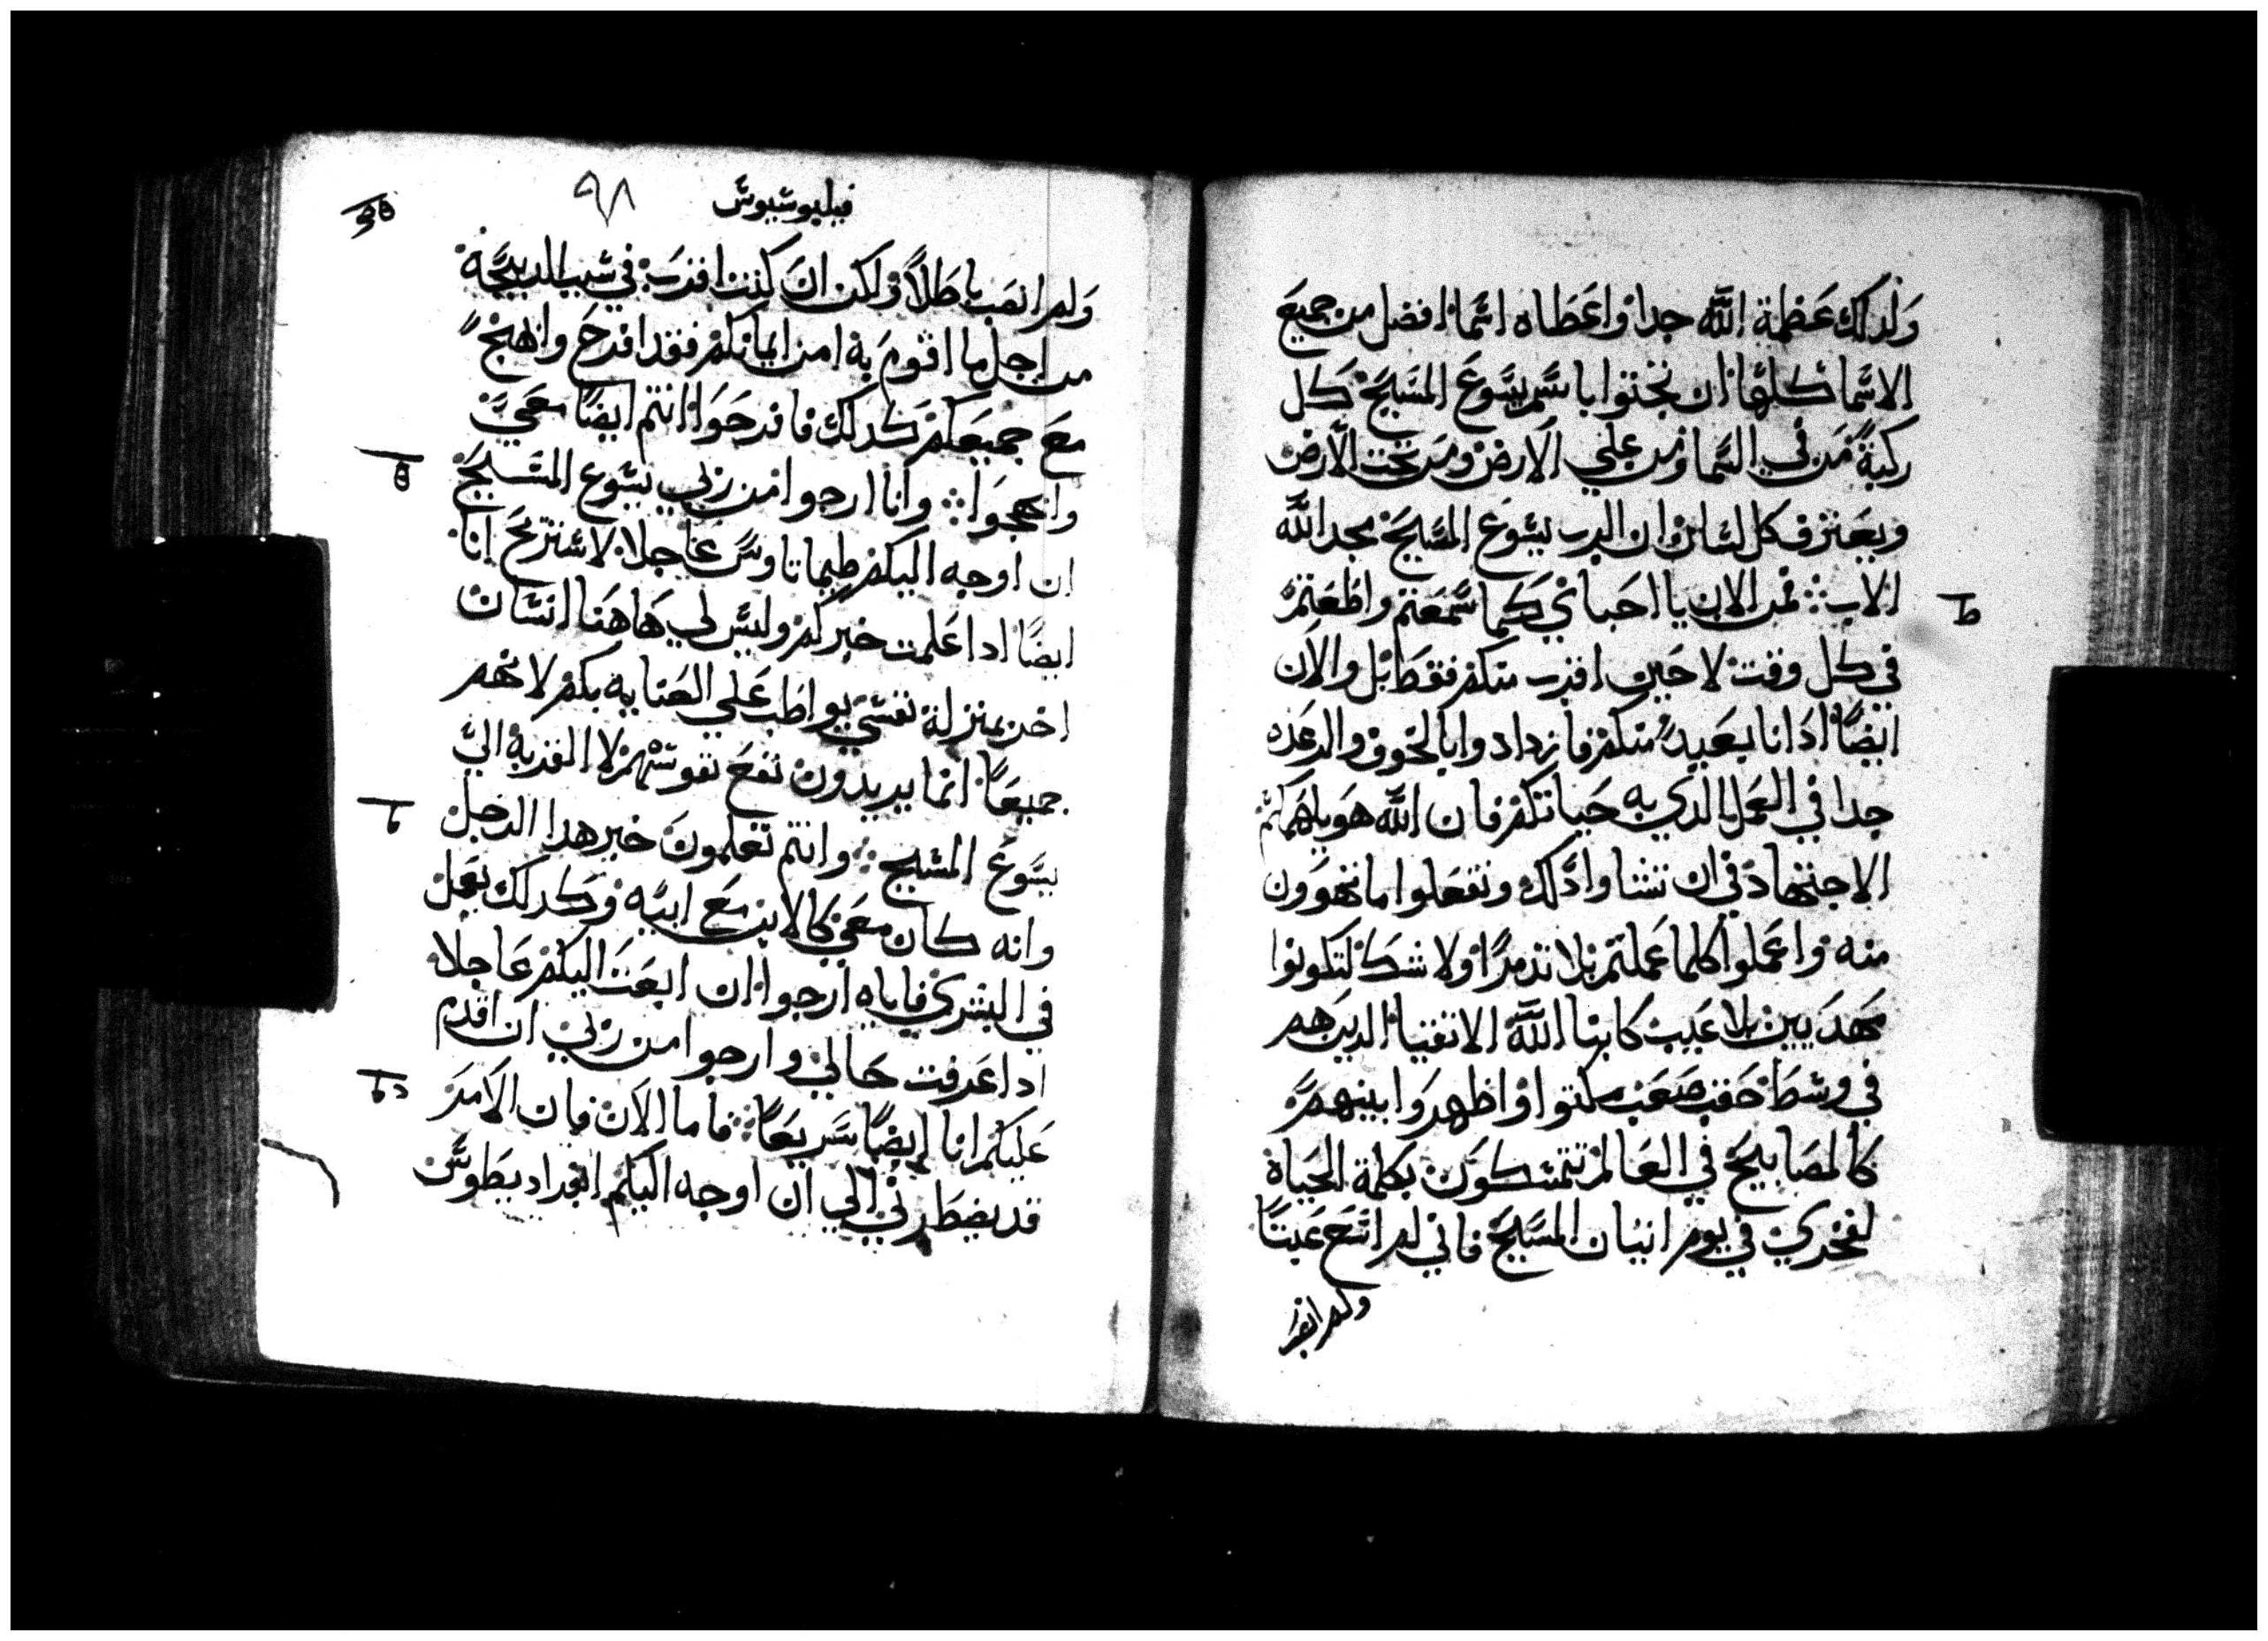 ولدلك عظمة الله جدا واعطاه اسما افضل من جميع
الاسما كلها ان تجتوا باسم يسوع المسيح كل
ركبة من في السما ومن علي الارض ومن تحت الارض
ويعترف كل لسان ان الرب يسوع المسيح مجد الله
الاب فمن الان يا احباي كما سمعتم واطعتم
في كل وقت لا حين اقرب منكم فقط بل والان
ايضا اد انا بعيد منكم فازدادوا بالخوف والرعده
جدا في العمل الدي به حياتكم فان الله هو يلهمكم
الاجتهاد في ان تشاوا دلك وتفعلوا ما تهوون
منه واعملوا كلما عملتم بلا تذمر ولا شك لتكونوا
مهديين بلا عيب كابنا الله الاتقيا الدين هم
في وسط حقب صعب ملتوا واظهروا بينهم
كالمصابيح في العالم تتمسكون بكلمة الحياة
لفخري في يوم اتيان المسيح فاني لم اسع عبثا
ولم انصب
فيليوسيوس ٩٨
ولم انصب باطلا ولكن ان كنت اقرب في سبب الدبيحة
من اجل ما اقوم به امن ايمانكم فقد افرح وابهج
مع جميعكم كدلك فافرحوا انتم ايضا معي
وابهجوا وانا ارجوا من ربي يسوع المسيح
ان اوجه اليكم طيماتاوس عاجلا لاستريح انا
ايضا ادا علمت خبركم وليس لي هاهنا انسان
اخر بمنزلة نفسي يواظب علي العنايه بكم لانهم
جميعا انما يريدون نفع نفوسهم لا القربة الي
يسوع المسيح وانتم تعلمون خبر هدا الرجل
وانه كان معي كالابن مع ابيه وكدلك بعمل
في البشري فاياه ارجوا ان ابعت اليكم عاجلا
ادا عرفت حالي وارجوا من ربي ان اقدم
عليكم انا ايضا سريعا فاما الان فان الامر
قد يضطرني الي ان اوجه اليكم افرديطوس